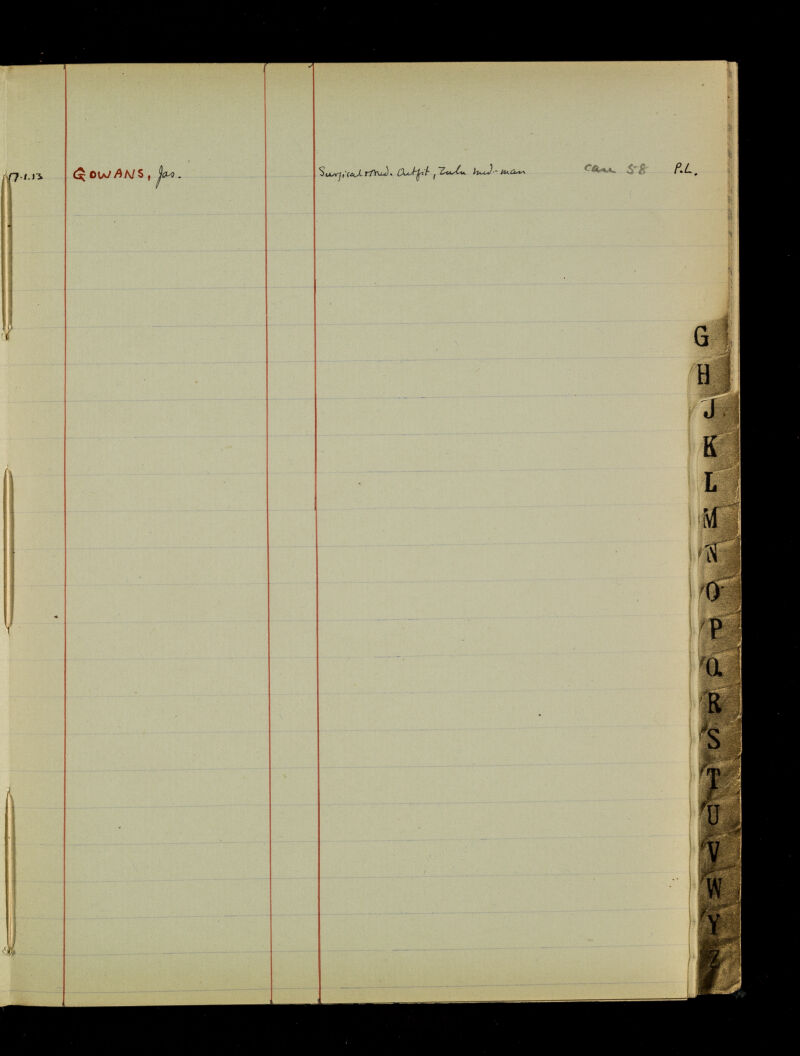 17.1.13 GOWANS, Jas. Surgical & Med. Outfit, Zulu med-man case 58 P.L.
G
H
J
K
L
M
N
O
P
Q
R
S
T
U
V
W
Y
Z